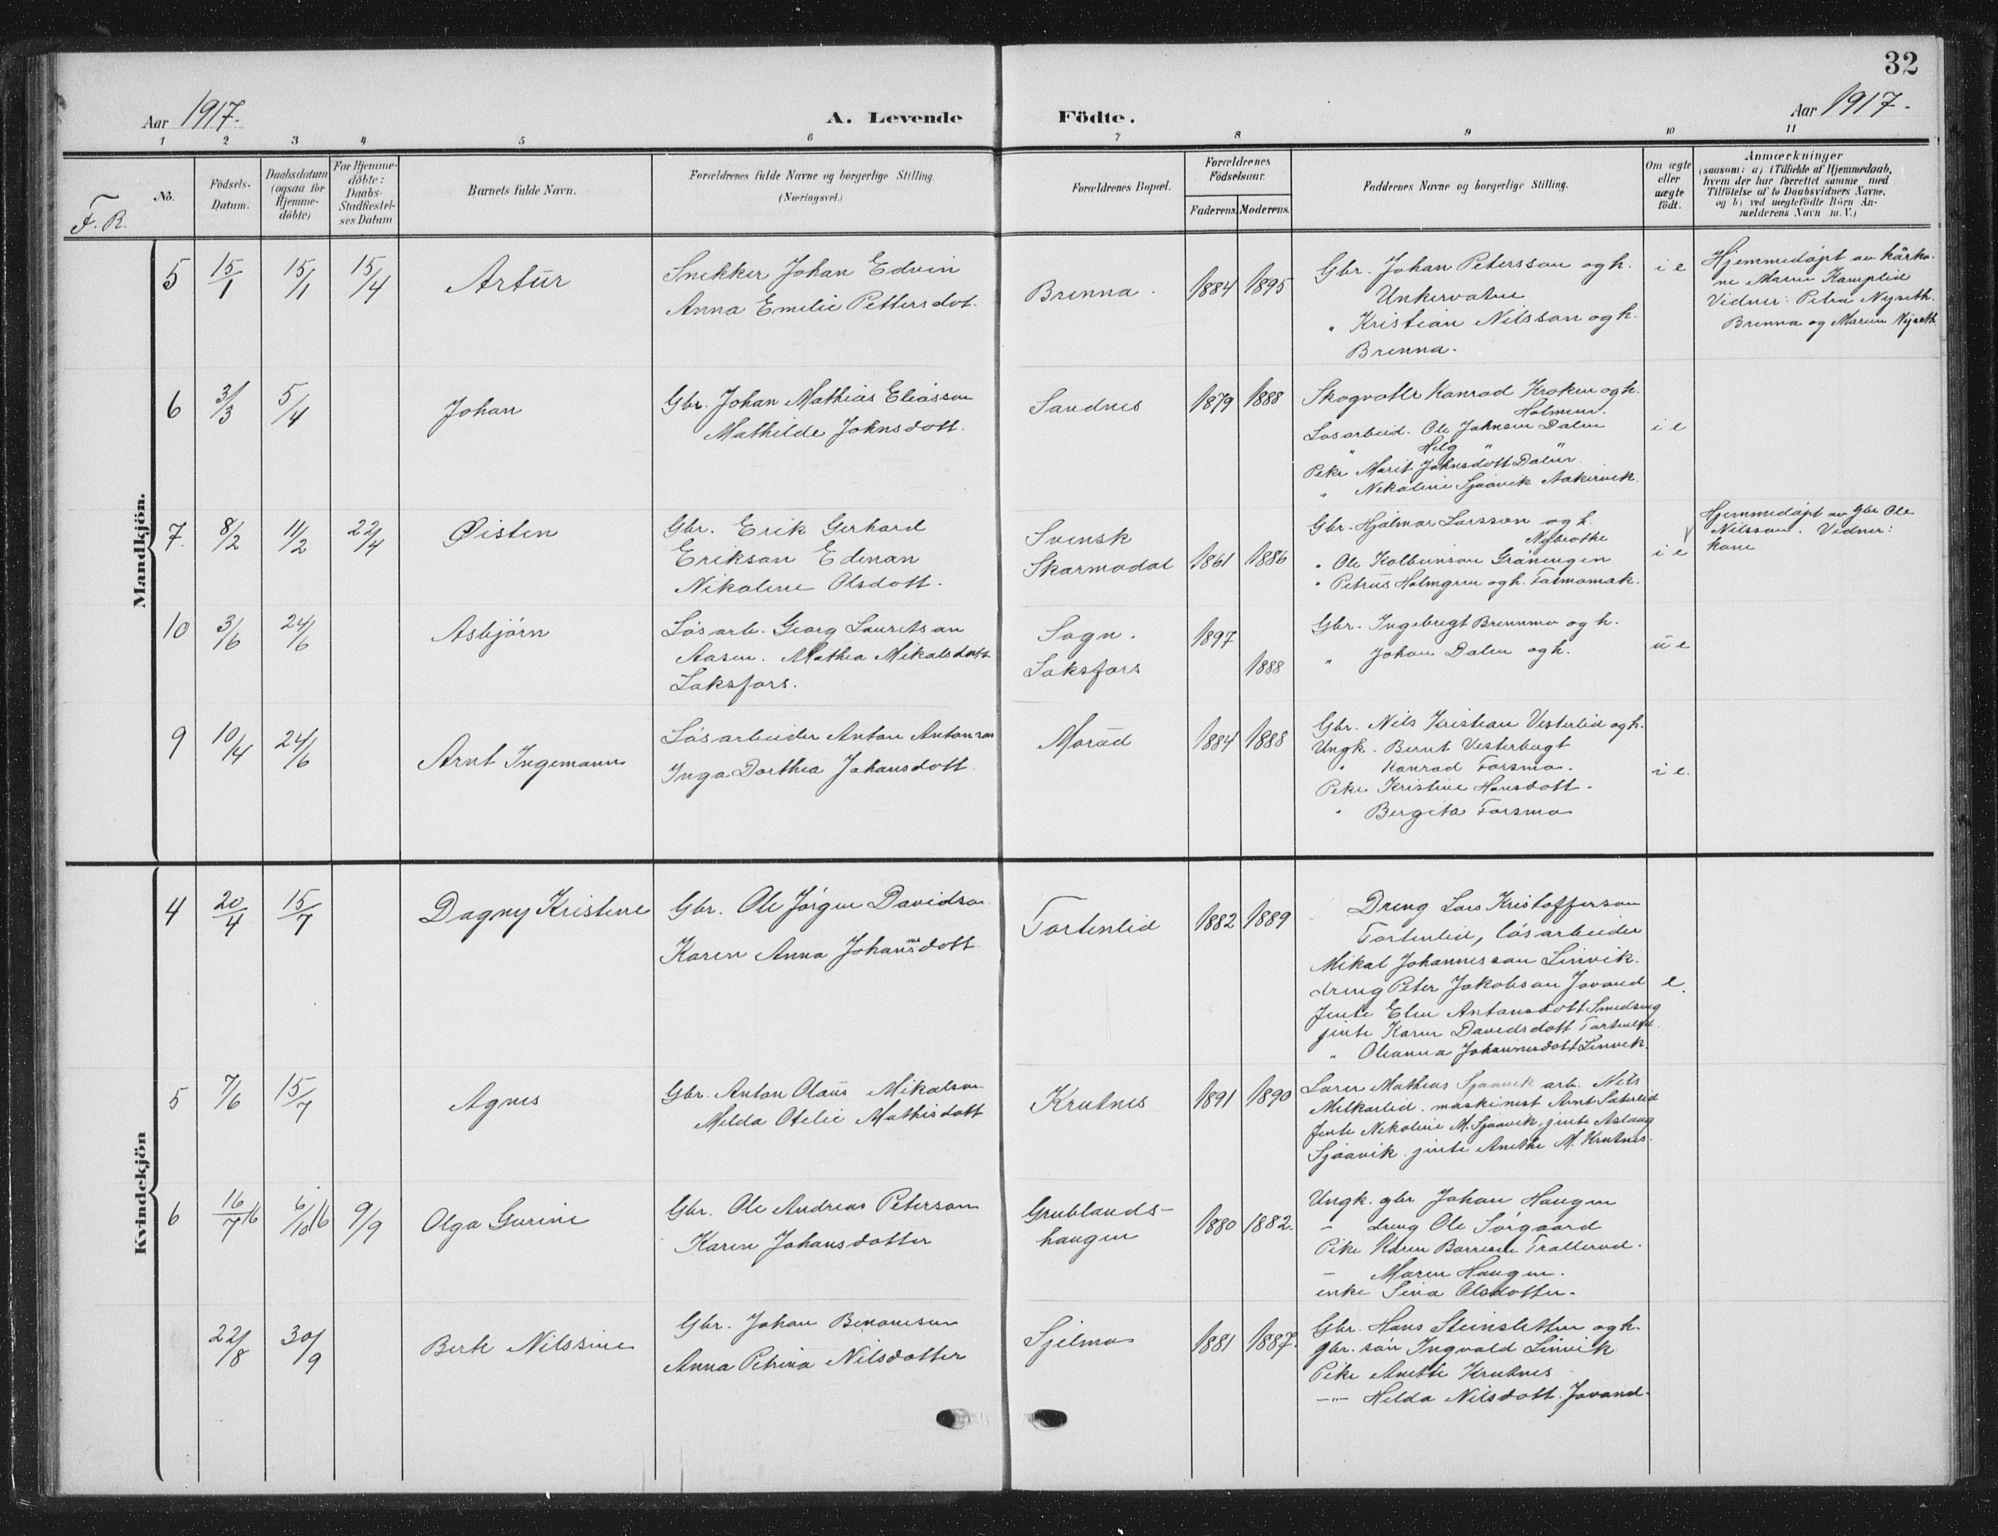 32
Aar 1917.
A. Levende
Födte.
Aar 1917.
1 2 3 4 5 6 7 8 9 10 11
F. R.
No.
Födsels-
Datum.
Daabsdatum
(ogsaa for
Hjemme-
döbte)
For Hjemme-
döbte:
Daabs-
Stadfæstel-
ses Datum
Barnets fulde Navn.
Forældrenes fulde Navne og borgerlige Stilling.
(Næringsvei.)
Forældrenes Bopæl.
Forældrenes
Födselsaar.
Faderens. Moderens.
Faddernes Navne og borgerlige Stilling.
Om ægte
eller
uægte
födt.
Anmærkninger
(saasom: a) i Tilfælde af Hjemmedaab,
hvem der har forrettet samme med
Tilföielse af to Daabsvidners Navne,
og b) ved uægtefödte Börn An-
melderens Navn m. V.)
Mandkjön.
5 15/1 15/1 15/4 Artur
Snekker Johan Edvin
Anna Emilie Pettersdot.
Brenna. 1884 1895
Gbr. Johan Petersson og h.
Unkervatne
" Kristian Nilsson og h.
Brenna.
i e
Hjemmedøpt av
ne Maren Kamplid
Vidner: Petra Nyseth.
Brenna og Maren Nyseth
6 3/3 5/4 Johan
Gbr. Johan Mathias Eliasson
Mathilde Johnsdott.
Sandnes 1879 1888
Skogvokt. Konrad Kroken og h.
Holmen.
Løsarbeid. Ole Johnsen Dalen
" Helg " "
Peke Marit Johnsdott Dalen.
" Nikoline Sjaavik Aakervik.
i e
7. 8/2 11/2 22/4 Øisten
Gbr. Erik Gerhard
Erikson Edman
Nikoline Olsdott.
Svensk
Skarmodal 1861 1886
Gbr. Hjalmar Larsson og h.
" Ole Kolbeinson Granengen
" Petrus Holmgren og h. Fatmomak.
i e
Hjemmedøpt av Gbr Ole
Nilsson. Vidner:
kone
10 3/6 24/6 Asbjørn
Løsarb. Georg Lauritsan
Aasen. Mathea Mikalsdott
Laksfors.
Sogn.
Laksfors
1897
1888
Gbr. Ingebregt Brennmo og h.
" Johan Dalen og h.
u e
9 10/4 24/6 Arnt Ingemann
Løsarbeider Anton Antonsen
Inga Dorthea Johansdott.
Morud 1884 1888
Gbr. Nils Kristian Vesterlid og h.
Ungk. Bernt Vesterbugt
" Konrad Forsmo.
Peke Kristine Hansdott.
" Bergita Forsmo
i e.
Kvindekjön
4 20/4 15/7 Dagny Kristine
Gbr. Ole Jørgen Davidson
Karen Anna Johannesdott.
Tortenlid 1882 1889
Dreng Lars Kristofferson
Tortenlid, løsarbeider
Mikal Johannesson Linvik.
dreng Peter Jakobson Jovand
Jente Elen Antonsdott Smedseng
jente Karen Davidsdott Tortenlid.
" Oleanna Johannesdott Linvik.
e.
5 7/6 15/7 Agnes
Gbr. Anton Olaus Mikalson
Melda Otelie Mathisdott
Krutnes 1891 1890
Lærer Mathias Sjaavik arb. Nils
Melkarlid. maskinest Arnt Sæterlid
Jente Nikoline M. Sjaavik, jente Aslaug
Sjaavik. jente Anethe M. Krutnes.
6 16/7 16 6/10 16 9/9 Olga Gurine
Gbr. Ole Andreas Peterson
Karen Johansdotter
Grublands-
haugen 1880 1882.
Ungk. gbr Johan Haugen
– dreng Ole Sørgaard
Pike Karen Borresen Trallerud.
– Maren Haugen.
enke Sina Olsdotter.
22/8 30/9 Berk Nilssine
Gbr. Johan Benonisen
Anna Petrina Nilsdotter
Sjelmo 1881 1887.
Gbr. Hans Steinsletten og h.
gbr. søn Ingvald Linvik
Peke Anette Krutnes
–"– Helda Nilsdott. Jovand.